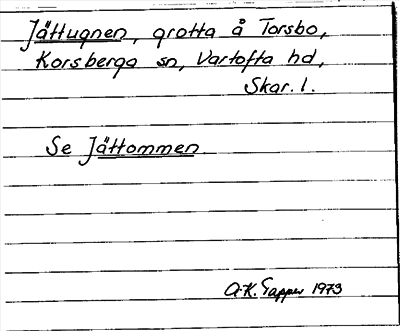 Jättugnen, grotta å Torsbo,
Korsberga sn, Vartofta hd,
Skar. l.
Se Jättommen
A-K. Tapper 1973